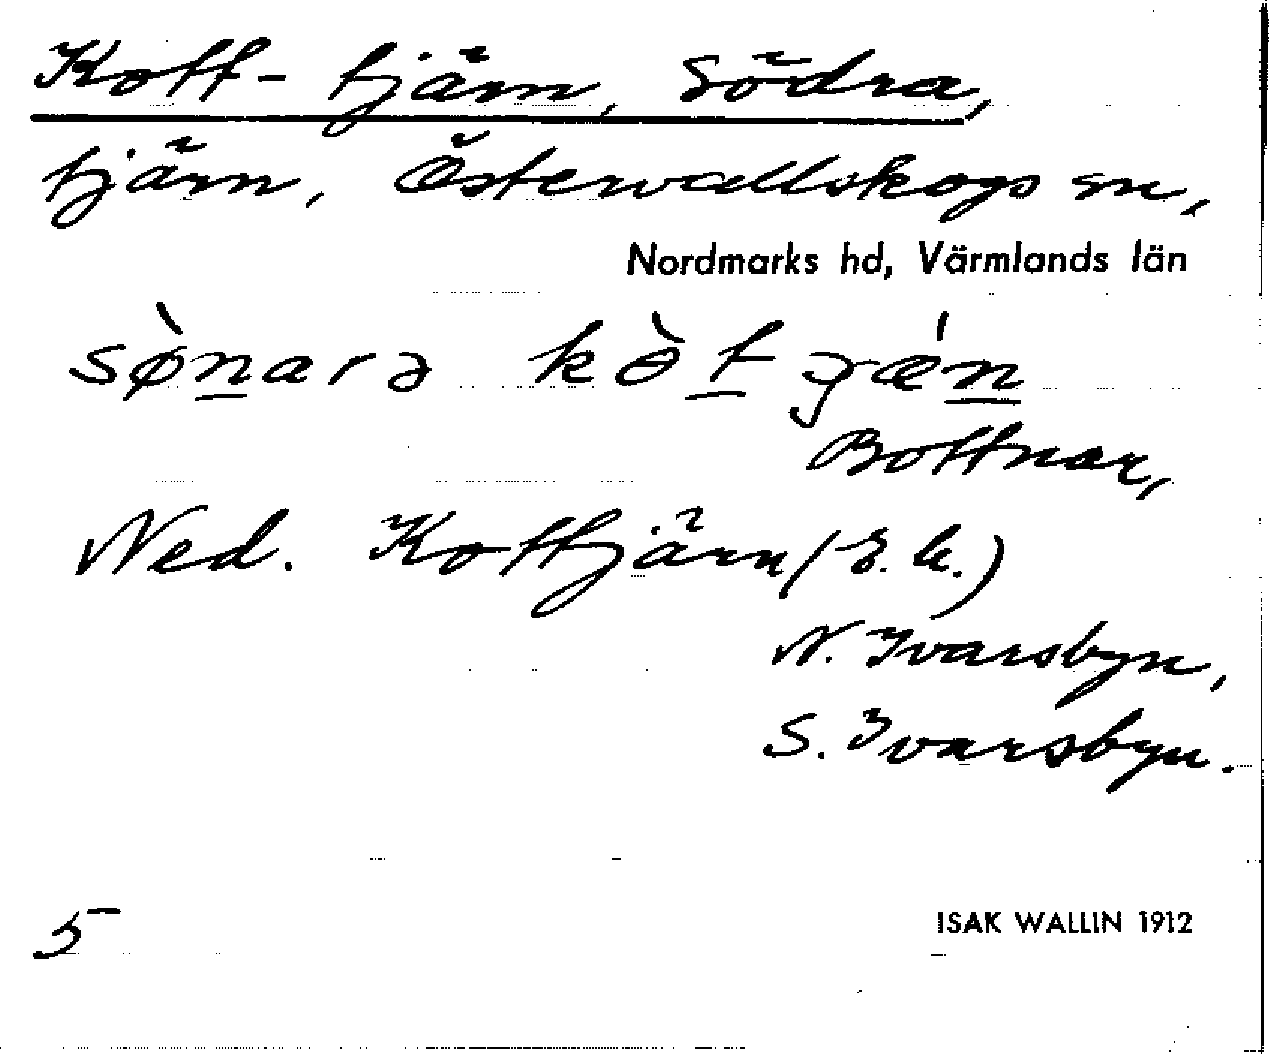 Kott-tjärn, Södra,
tjärn, Östervallskogs sn,
Nordmarks hd, Värmlands län
sø̀narə kɵ̀t ɟǽn
Bottnar,
Ned. Kottjärn (E.k.)
N. Ivarsbyn,
S. Ivarsbyn.
5
ISAK WALLIN 1912